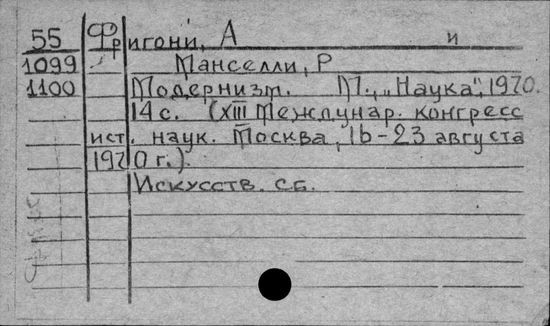 55 Фригони, А и
1099 Манселли, Р
1100 Модернизм. М., „Наука", 1970.
14 с. (XIII Междунар. конгресс
ист. наук. Москва, 16-23 августа
1970 г.).
Искусств. сб.